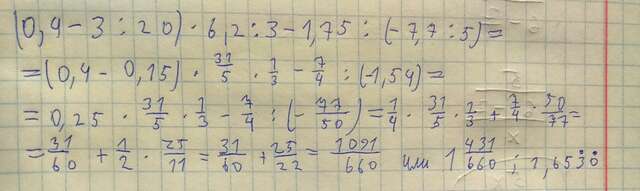 (0,4-3:20)·6,2:3-1,75:(-7,7:5)=
=(0,4-0,15)·31/5·1/3-7/4:(-1,54)=
=0,25·31/5·1/3-7/4:(-77/50)=1/4·31/5·1/3+7/4·50/77=
=31/60+1/2·25/11=31/60+25/22=1091/660 или 1 431/660; 1,6530